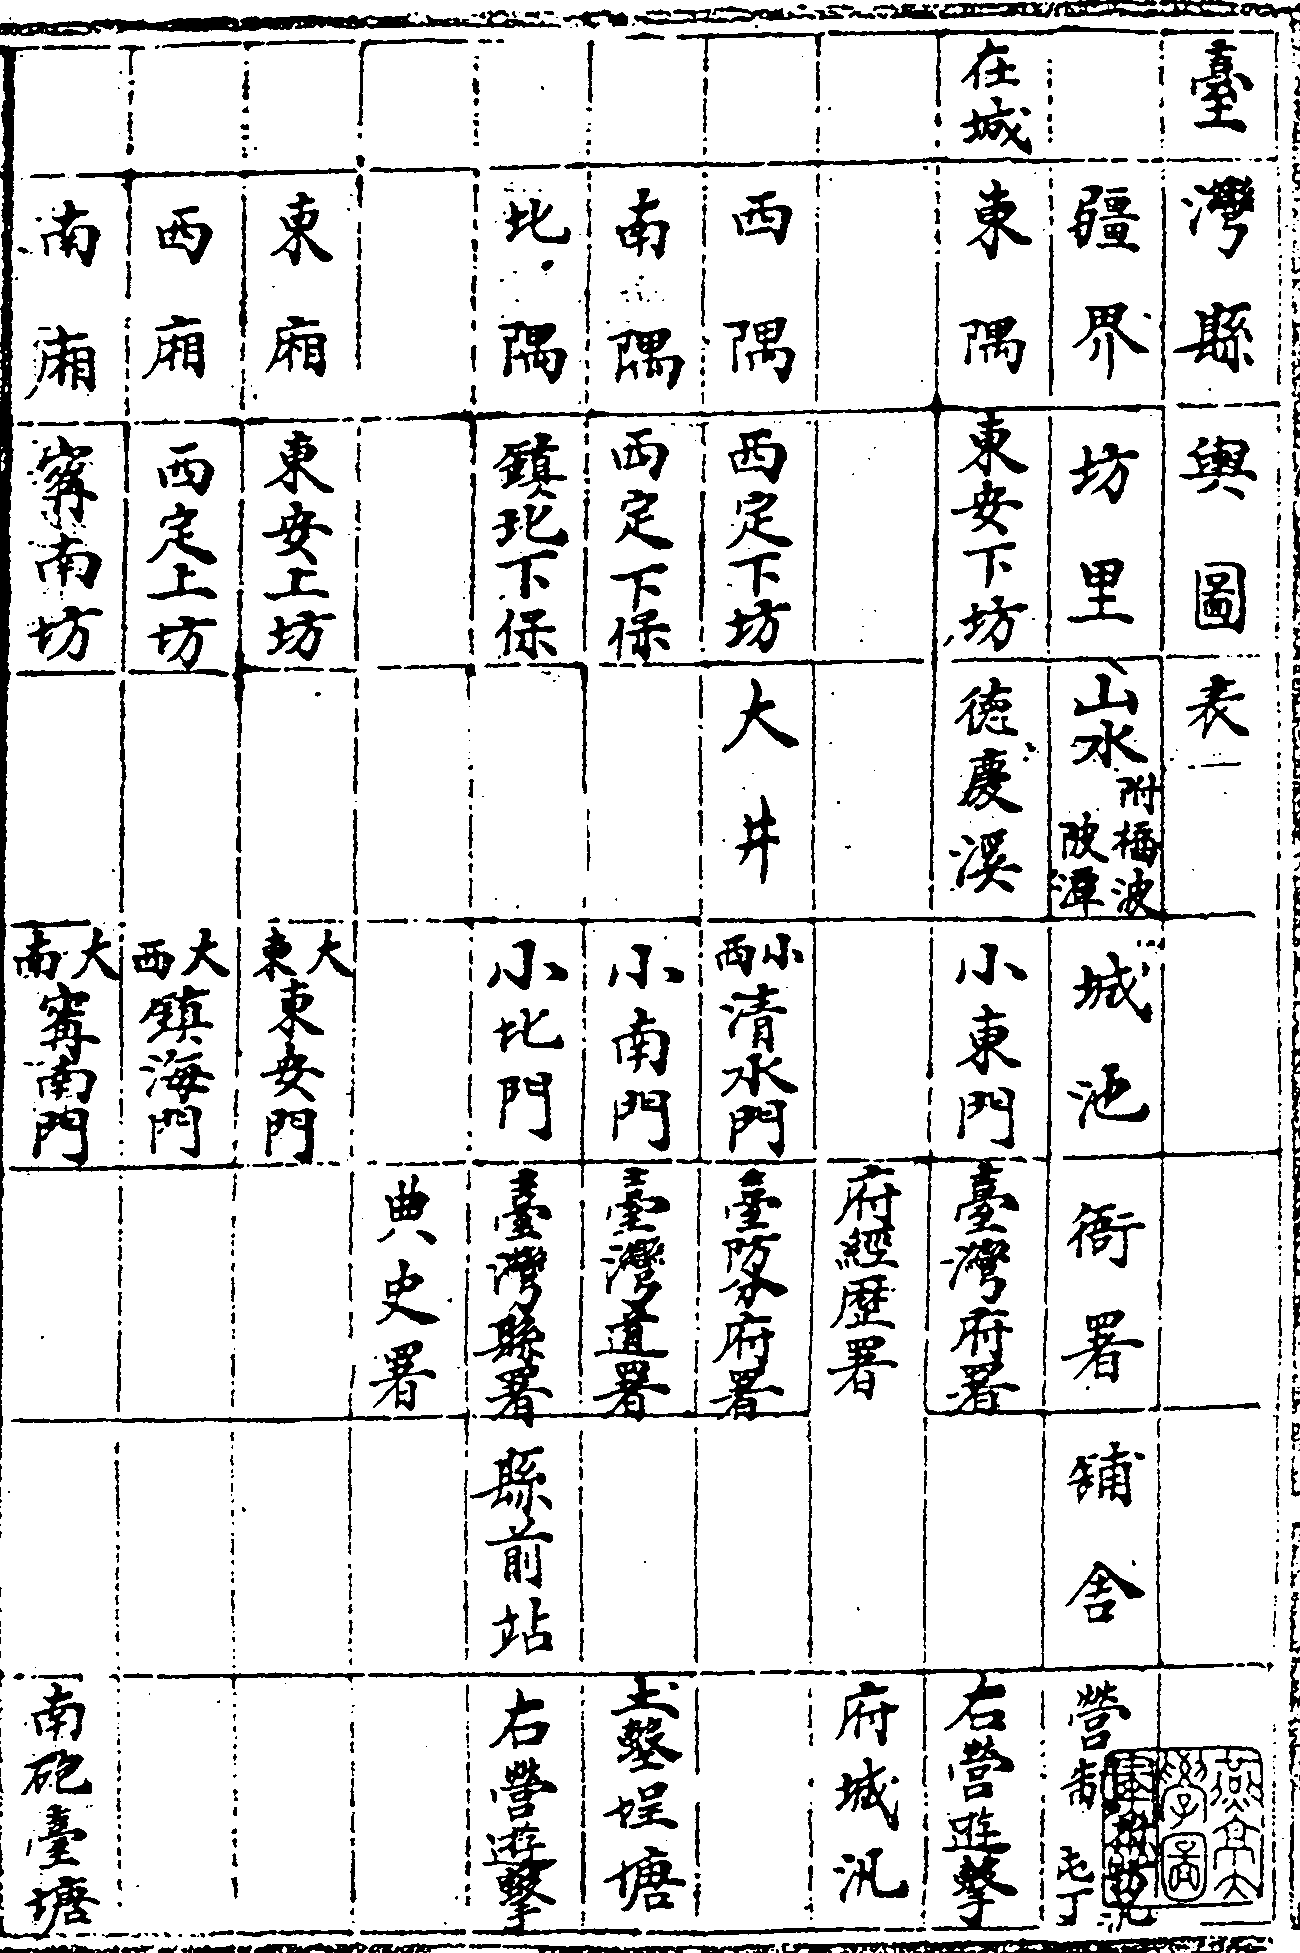 臺灣縣輿圖表一
疆界 坊里 山水附橋波陂潭 城池 衙署 鋪舍 營制屯丁
在城 東隅 東安下坊 德慶溪 小東門 臺灣府署 右營遊擊
府經歷署 府城汛
西隅 西定下坊 大井 小西清水門 臺防鯮府署
南隅 西定下保 小南門 臺灣道署 土墼埕塘
北隅 鎮北下保 小北門 臺灣縣署 縣前站 右營遊擊
典史署
東廂 東安上坊 大東東安門
西廂 西定上坊 大西鎮海門
南廂 寗南坊 大南寗南門 南砲臺塘
燕京大學圖